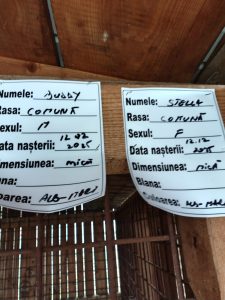 Numele: BUBBY
Rasa: COMUNĂ
Sexul: M
Data nașterii: 12.02 2025
Dimensiunea: mică
ana:
oarea: ALB-MARO
Numele: STELLA
Rasa: COMUNĂ
Sexul: F
Data nașterii: 12.12
Dimensiunea: mică
Blana:
Culoarea: ALB-MARO